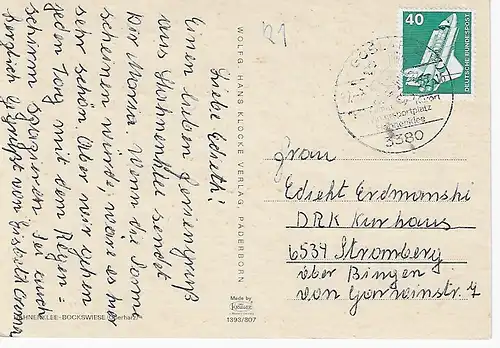 Liebe Edieth!
Einen lieben Feriengruß
aus Hahnenklee sendet
Dir Monika. Wenn die Sonne
scheinen würde, wäre es hier
sehr schön. Aber wir gehen
jeden Tag mit dem Regen=
schirm spazieren. Sei auch
herzlich gegrüßt von
HAHNENKLEE-BOCKSWIESE (Oberharz)
WOLFG. HANS KLOCKE VERLAG, PADERBORN
Made by
Krüger
1393/807
21
40
DEUTSCHE BUNDESPOST
3380
Frau
Edieht Erdmanski
DRK Kurhaus
6534 Stromberg
über Bingen
von Gorvinstr. 7